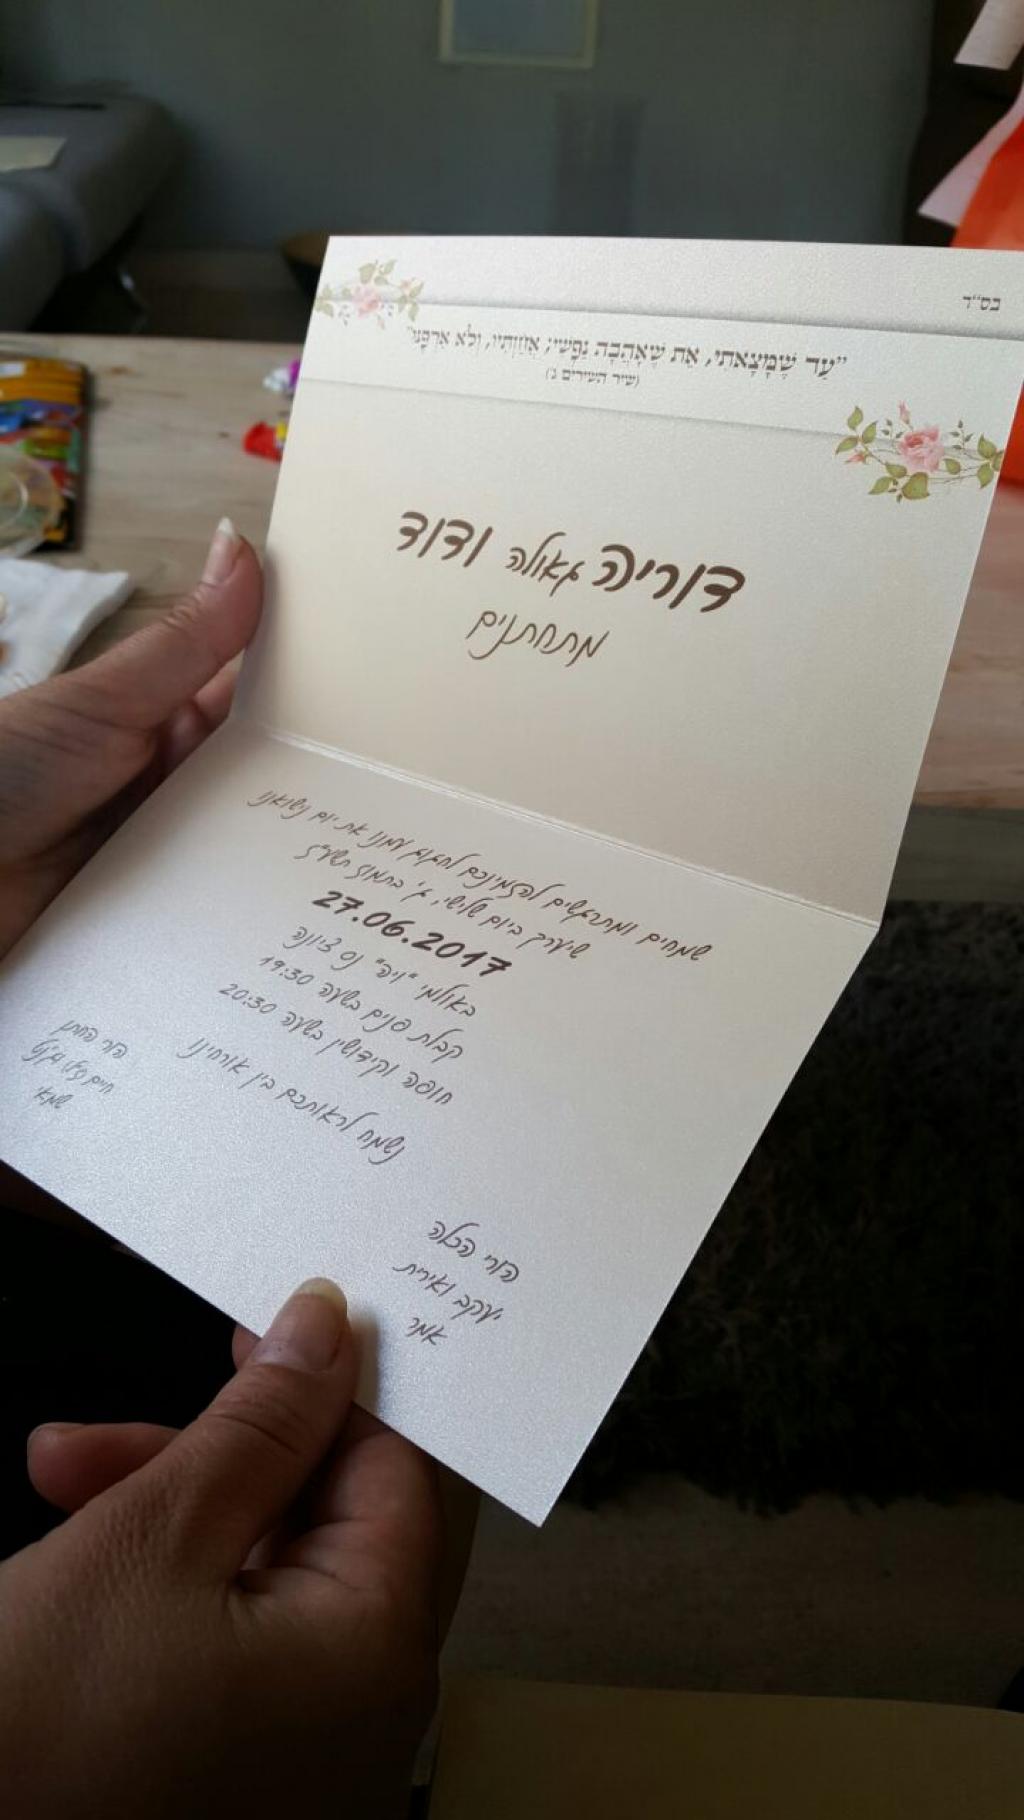 בס"ד
"עַד שֶׁמָּצָאתִי, אֵת שֶׁאָהֲבָה נַפְשִׁי; אֲחַזְתִּיו, וְלֹא אַרְפֶּנּוּ"
(שיר השירים ג')
דוריה גאולה ודוד
מתחתנים
שמחים ומתרגשים להזמינכם לחגוג עמנו את יום נישואנו
שיערך ביום שלישי, ג' בתמוז תשע"ז
27.06.2017
באולמי "ויה" נס ציונה
קבלת פנים בשעה 19:30
חופה וקידושין בשעה 20:30
נשמח לראותכם בין אורחינו
הורי החתן
חיים
שמאי
הורי הכלה
יעקב ואירית
אמר